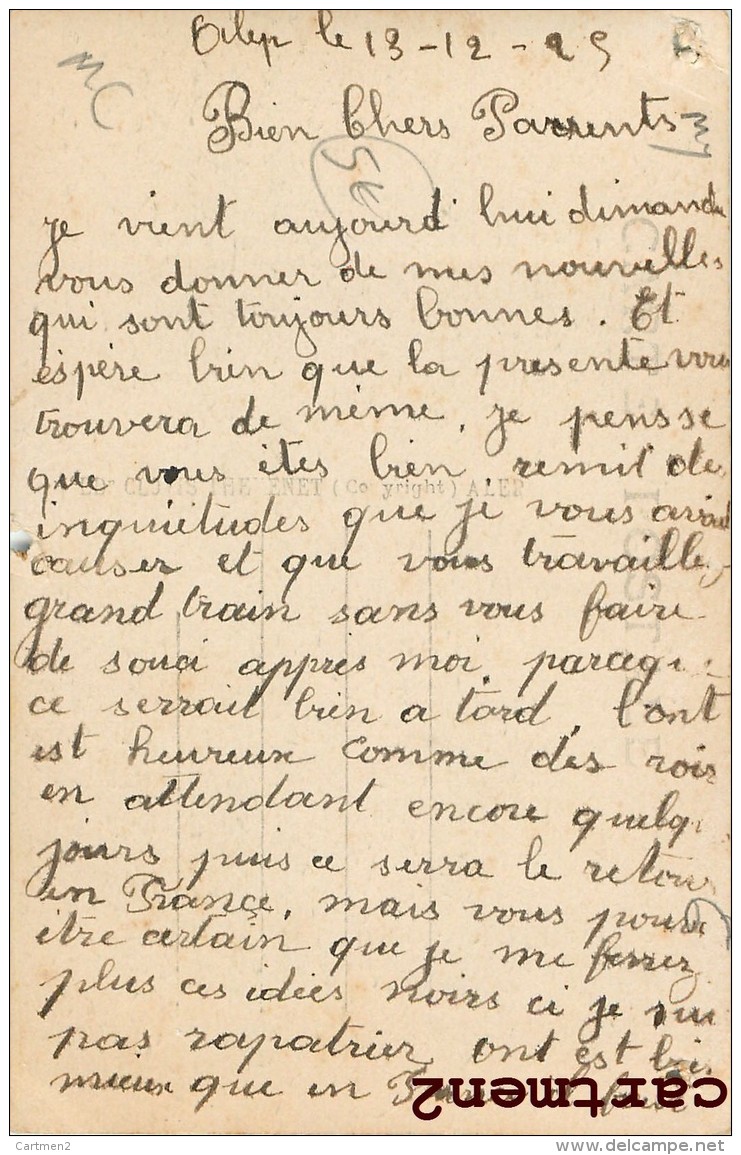 Alep le 13-12-25
Bien Chers Parrents
54
je vient aujourd'hui dimanche
vous donner de mes nouvelles
qui sont toujours bonnes. Et
espère bien que la présente vous
trouvera de même, je pensse
que vous êtes bien remit des
CLOVIS THEVENET (Copyright) ALEP
inquiétudes que je vous avait
causer et que vous travaillez
grand train sans vous faire
de souci appres moi, parceque
ce serrait bien a tard, l'ont
est heureux comme des rois
en attendant encore quelques
jours puis ce serra le retour
en France, mais vous pouvez
être certain que je me ferrez
plus ces idées noirs ci je suis
pas rapatrier ont est bien
mieux que en
cartmen2
Cartmen2
www.delcampe.net